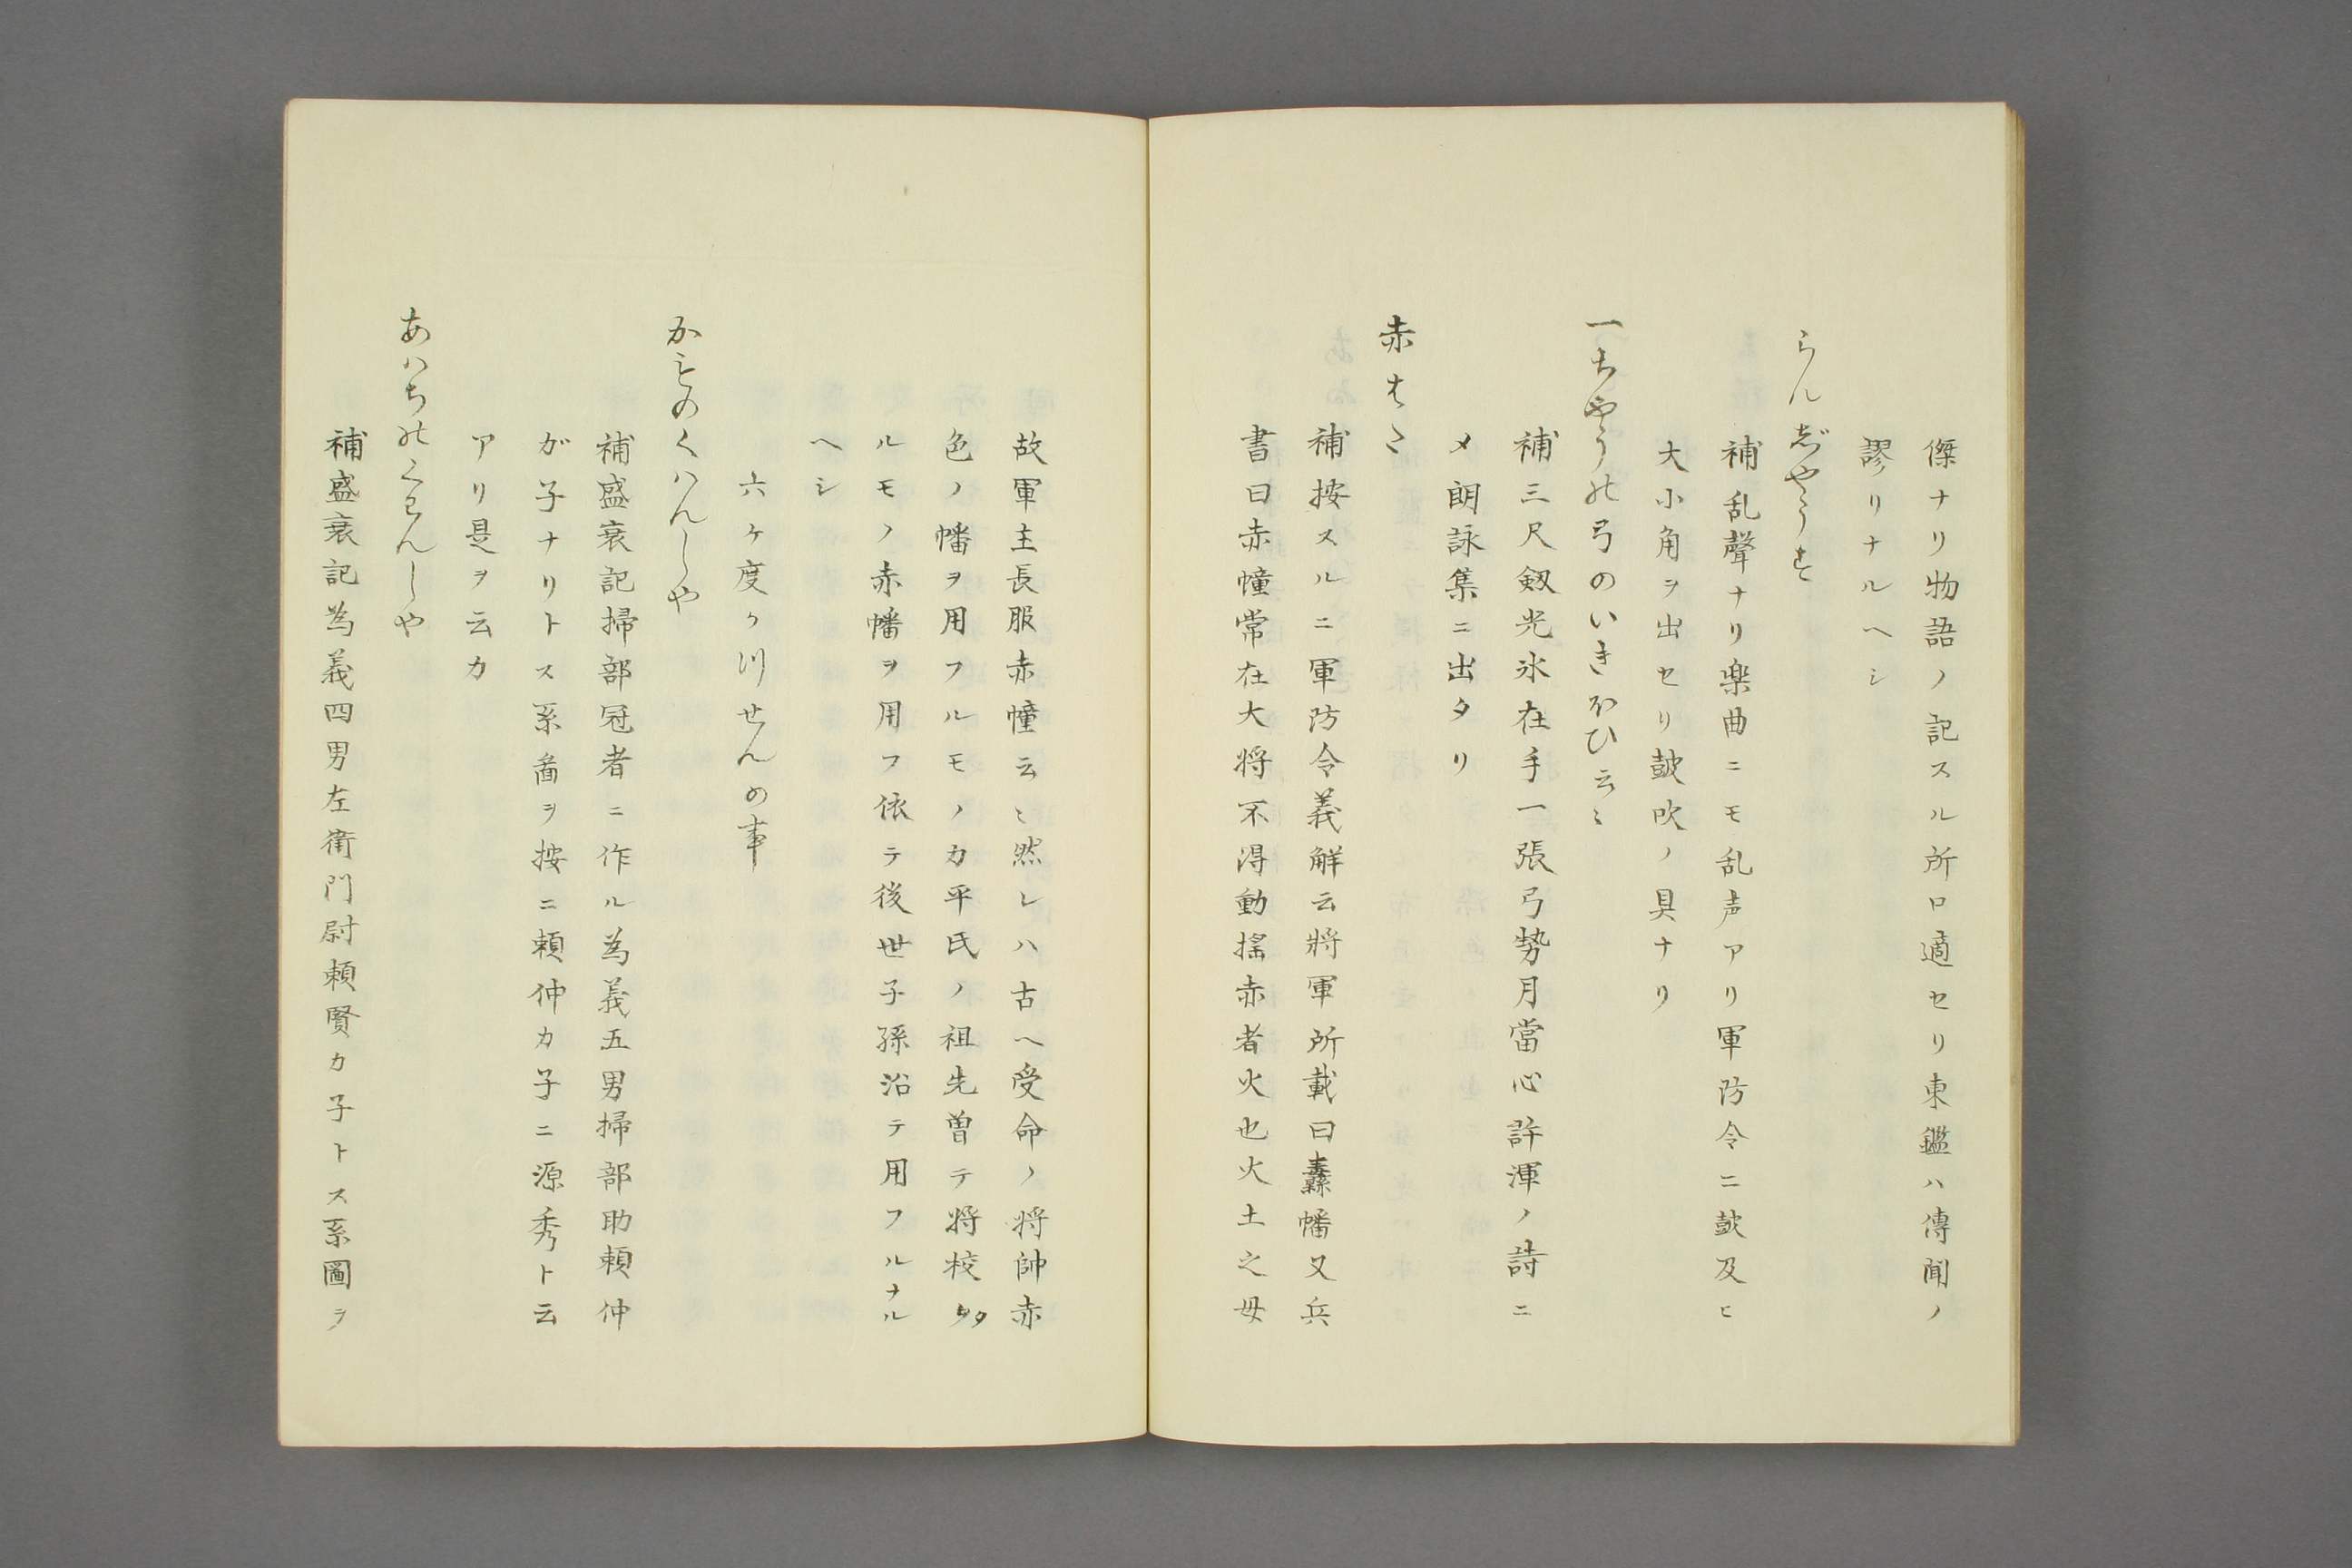 傑ナリ物語ノ記スル所ロ適セリ東鑑ハ傳聞ノ
謬リナルヘシ
らんじやうす
補乱聲ナリ楽曲ニモ乱声アリ軍防令ニ皷及ヒ
大小角ヲ出セリ皷吹ノ具ナリ
一ちやうの弓のいきほひ云〻
補三尺劔光氷在手一張弓勢月當心許渾ノ詩ニ
メ朗詠集ニ出タリ
赤はた
補按スルニ軍防令義解云將軍所載曰纛幡又兵
書曰赤幢常在大将不得動揺赤者火也火土之母
故軍主長服赤幢云〻然レハ古ヘ受命ノ将帥赤
色ノ幡ヲ用フルモノカ平氏ノ祖先曽テ将校タ
ルモノ赤幡ヲ用フ依テ後世子孫沿テ用フルナル
ヘシ
六ケ度か川せんの事
かもんのくはんしや
補盛衰記掃部冠者ニ作ル為義五男掃部助頼仲
ガ子ナリトス系畗ヲ按ニ頼仲カ子ニ源秀ト云
アリ是ヲ云カ
あハちのくわんしや
補盛衰記為義四男左衛門尉頼賢カ子トス系圖ヲ